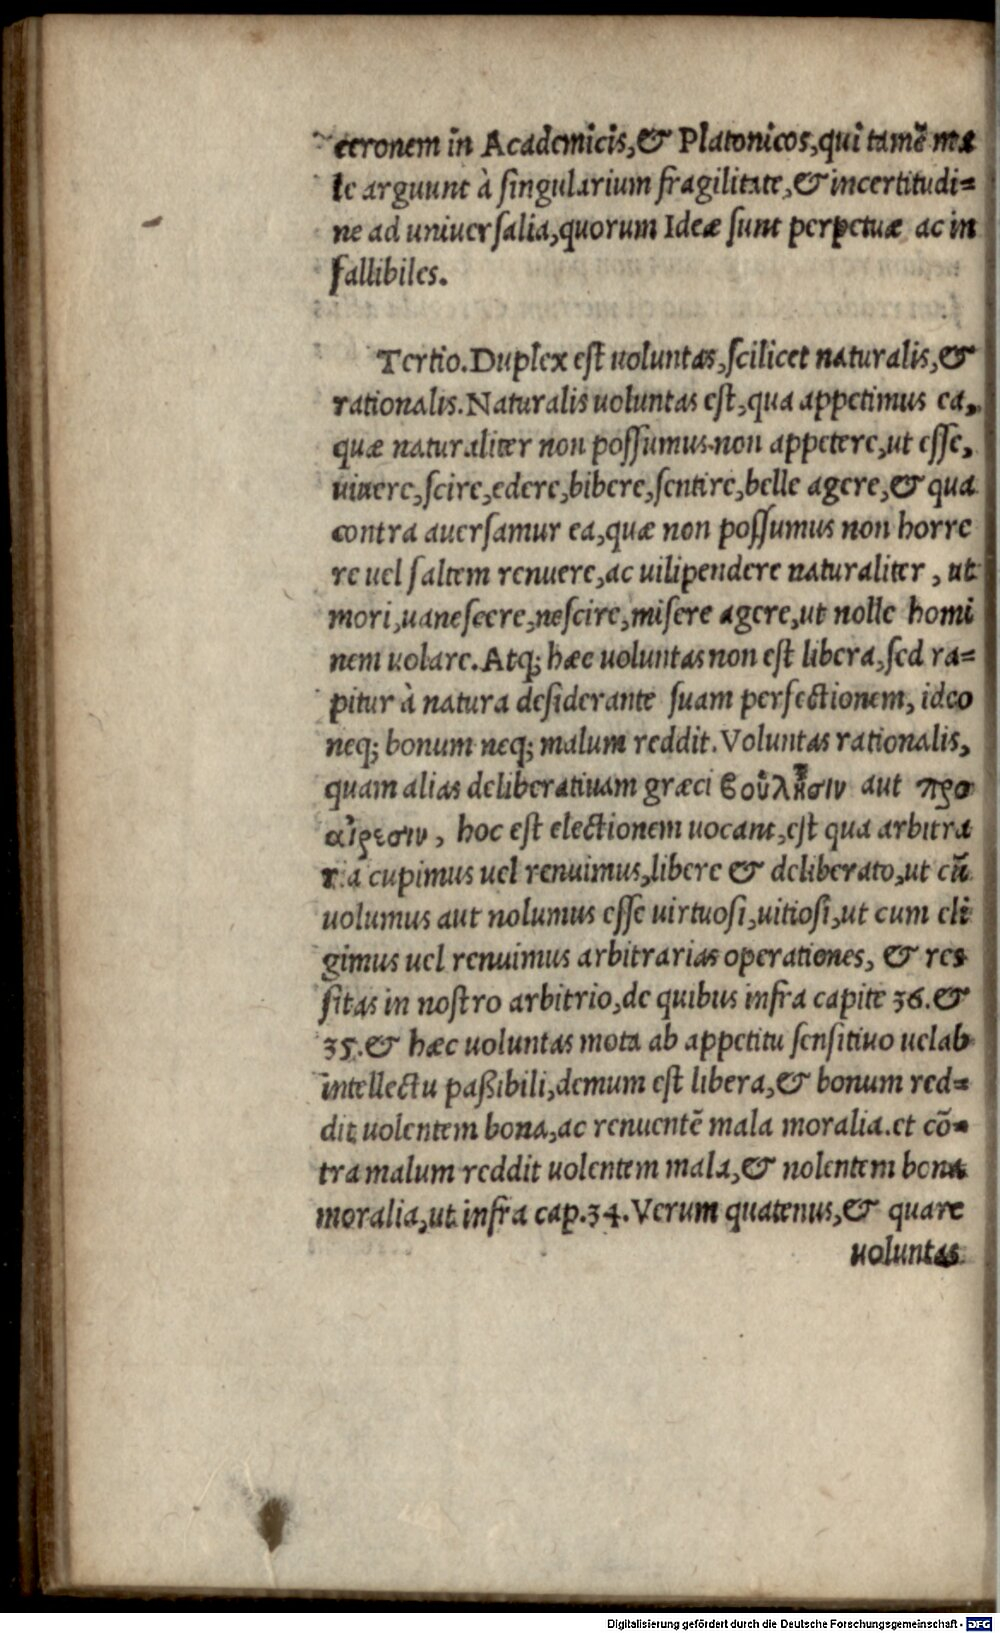 ceronem in Academicis, & Platonicos, qui tamẽ ma
le arguunt à singularium fragilitate, & incertitudi=
ne ad uniuersalia, quorum Ideæ sunt perpetuæ ac in
fallibiles.
Tertio. Duplex est uoluntas, scilicet naturalis, &
rationalis. Naturalis uoluntas est, qua appetimus ea,
quæ naturaliter non possumus non appetere, ut esse,
uiuere, scire, edere, bibere, sentire, belle agere, & qua
contra auersamur ea, quæ non possumus non horre
re uel saltem renuere, ac uilipendere naturaliter, ut
mori, uanescere, nescire, misere agere, ut nolle homi
nem uolare. Atq; hæc uoluntas non est libera, sed ra=
pitur à natura desiderante suam perfectionem, ideo
neq; bonum neq; malum reddit. Voluntas rationalis,
quam alias deliberatiuam græci βούλησιν aut προ
αίρεσιν, hoc est electionem uocant, est qua arbitra
ria cupimus uel renuimus, libere & deliberato, ut cũ
uolumus aut nolumus esse uirtuosi, uitiosi, ut cum eli
gimus uel renuimus arbitrarias operationes, & res
sitas in nostro arbitrio, de quibus infra capite 36. &
35. & hæc uoluntas mota ab appetitu sensitiuo uel ab
intellectu paßibili, demum est libera, & bonum red=
dit uolentem bona, ac renuentẽ mala moralia. et cõ=
tra malum reddit uolentem mala, & nolentem bona
moralia, ut infra cap. 34. Verum quatenus, & quare
uoluntas
Digitalisierung gefördert durch die Deutsche Forschungsgemeinschaft - DFG